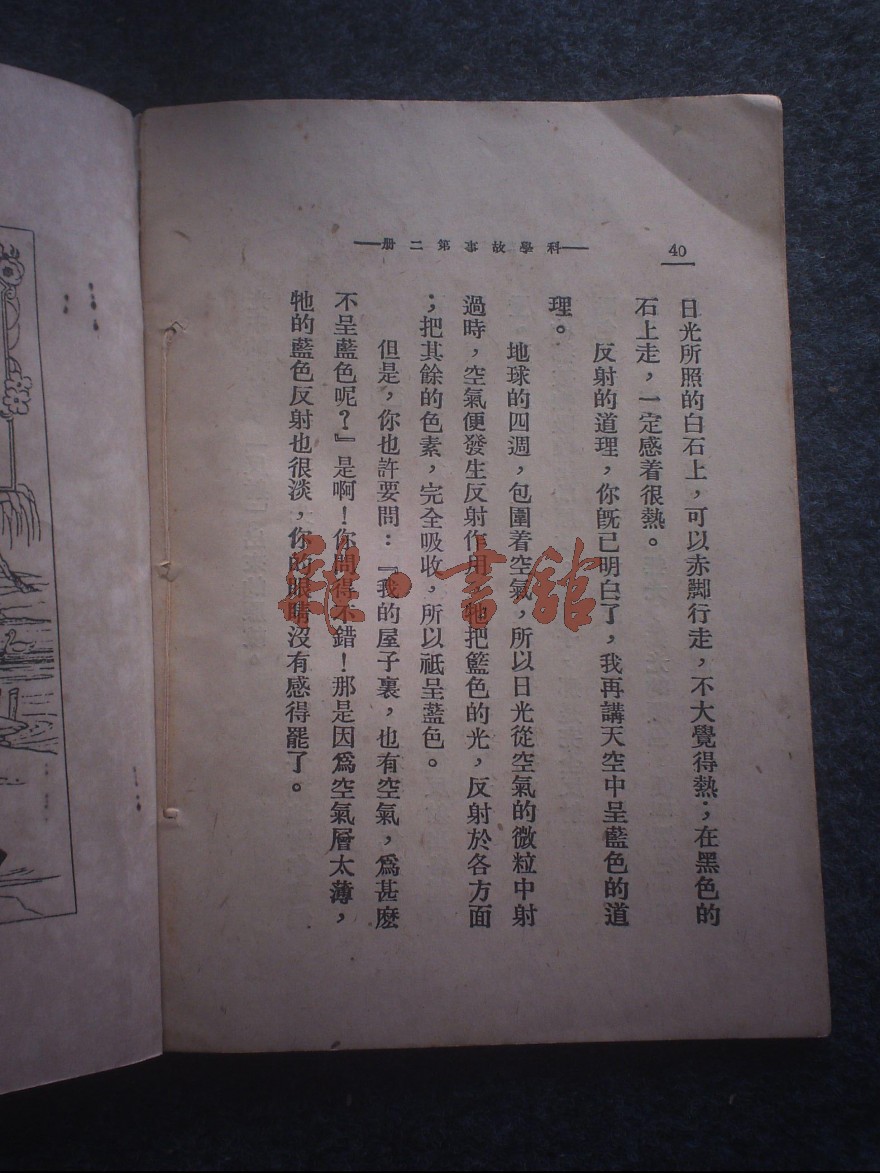 40
科學故事第二册
日光所照的白石上，可以赤脚行走，不大覺得熱；在黑色的
石上走，一定感着很熱。
反射的道理，你旣已明白了，我再講天空中呈藍色的道
理。
地球的四週，包圍着空氣，所以日光從空氣的微粒中射
過時，空氣便發生反射作用，牠把籃色的光，反射於各方面
；把其餘的色素，完全吸收，所以祗呈藍色。
但是，你也許要問：『我的屋子裏，也有空氣，爲甚麽
不呈藍色呢？』是啊！你問得不錯！那是因爲空氣層太薄，
牠的藍色反射也很淡，你的眼睛沒有感得罷了。
雜·書館